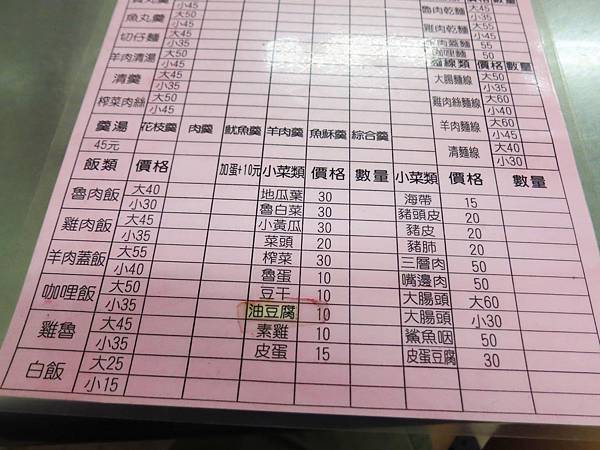 小45
魚丸羹 大45
小35
切仔麵 大50
小45
羊肉清湯 大50
清羹 大45
小35
榨菜肉絲 大50
小45
價格 數量
魯肉乾麵 大45
小35
雞肉乾麵 大55
小45
羊肉蓋麵 55
咖哩麵 50
麵線類 價格 數量
大腸麵線 大50
小35
雞肉絲麵線 大60
小40
羊肉麵線 大55
小45
清麵線 大40
小30
羹湯 花枝羹 肉羹 魷魚羹 羊肉羹 魚酥羹 綜合羹
45元
飯類 價格 加蛋+10元 小菜類 價格 數量 小菜類 價格 數量
魯肉飯 大40 地瓜葉 30 海帶 15
小30 魯白菜 30 豬頭皮 20
雞肉飯 大45 小黃瓜 30 豬皮 20
小35 菜頭 20 豬肺 20
羊肉蓋飯 大55 榨菜 30 三層肉 50
小40 魯蛋 10 嘴邊肉 50
咖哩飯 大50 豆干 10 大腸頭 大60
小35 油豆腐 10 大腸頭 小30
雞魯 大45 素雞 10 鯊魚咽 50
小35 皮蛋 15 皮蛋豆腐 30
白飯 大25
小15